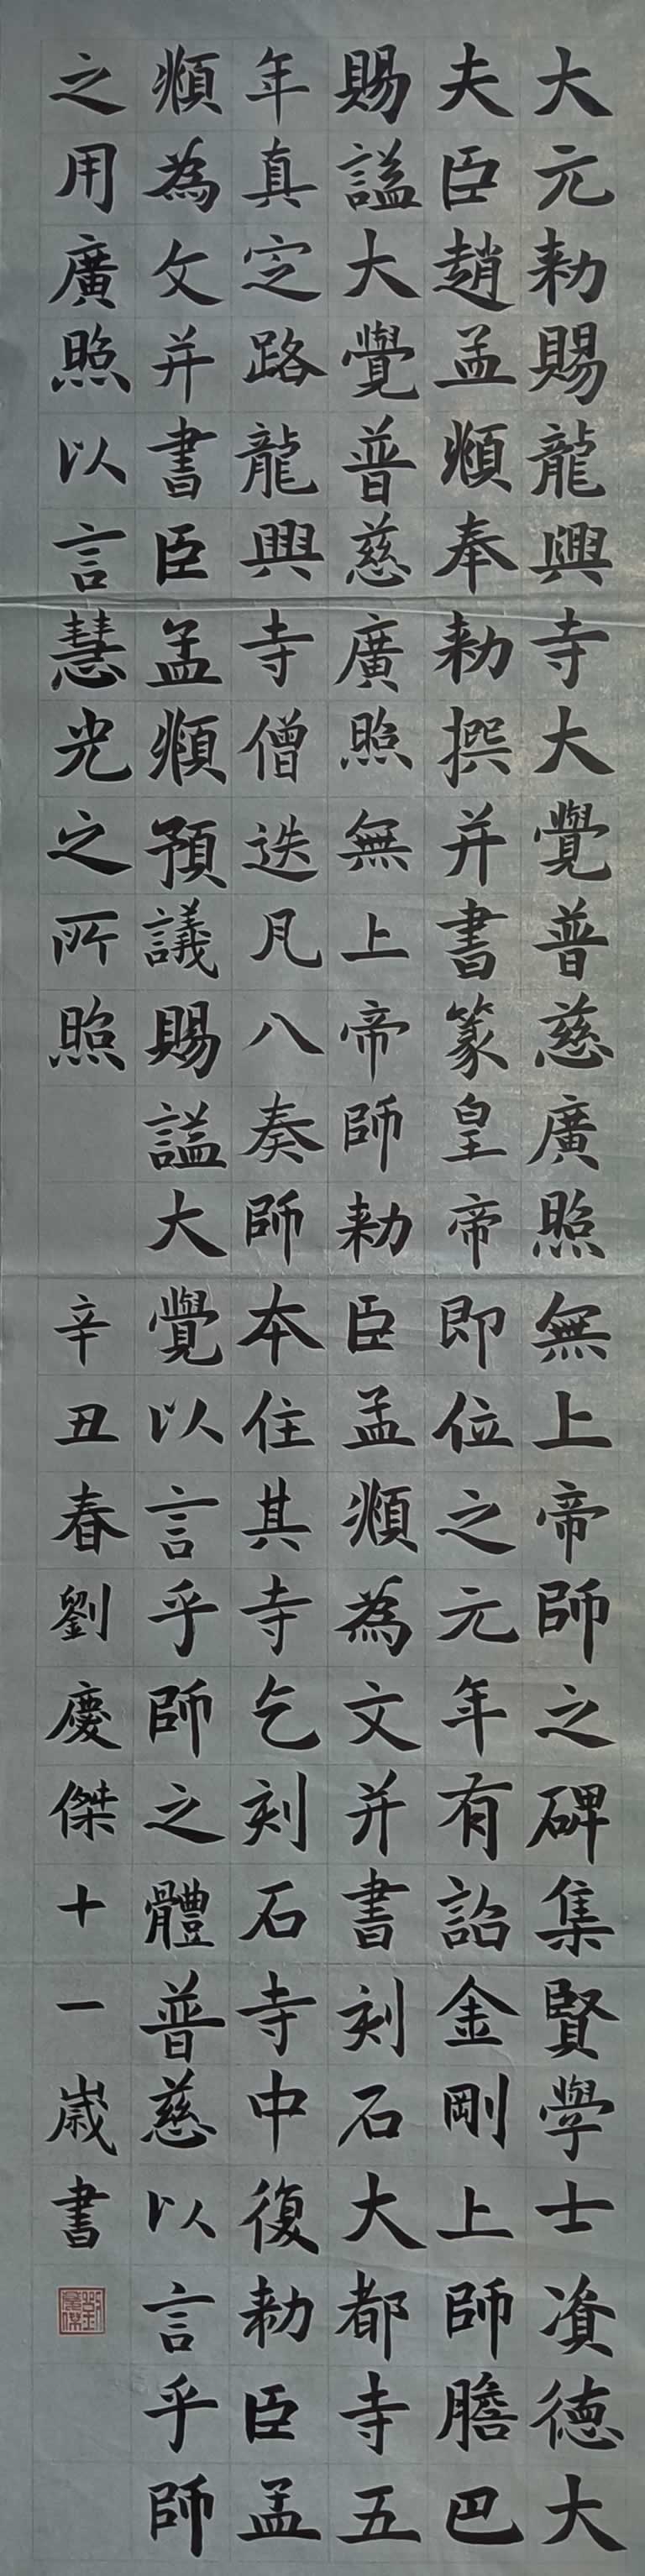 大元勑賜龍興寺大覺普慈廣照無上帝師之碑集賢學士資德大
夫臣趙孟頫奉勑撰并書篆皇帝即位之元年有詔金剛上師膽巴
賜謚大覺普慈廣照無上帝師勑臣孟頫為文并書刻石大都寺五
年真定路龍興寺僧迭凡八奏師本住其寺乞刻石寺中復勑臣孟
頫為文并書臣孟頫預議賜謚大覺以言乎師之體普慈以言乎師
之用廣照以言慧光之所照
辛丑春劉慶傑十一歲書
劉慶傑